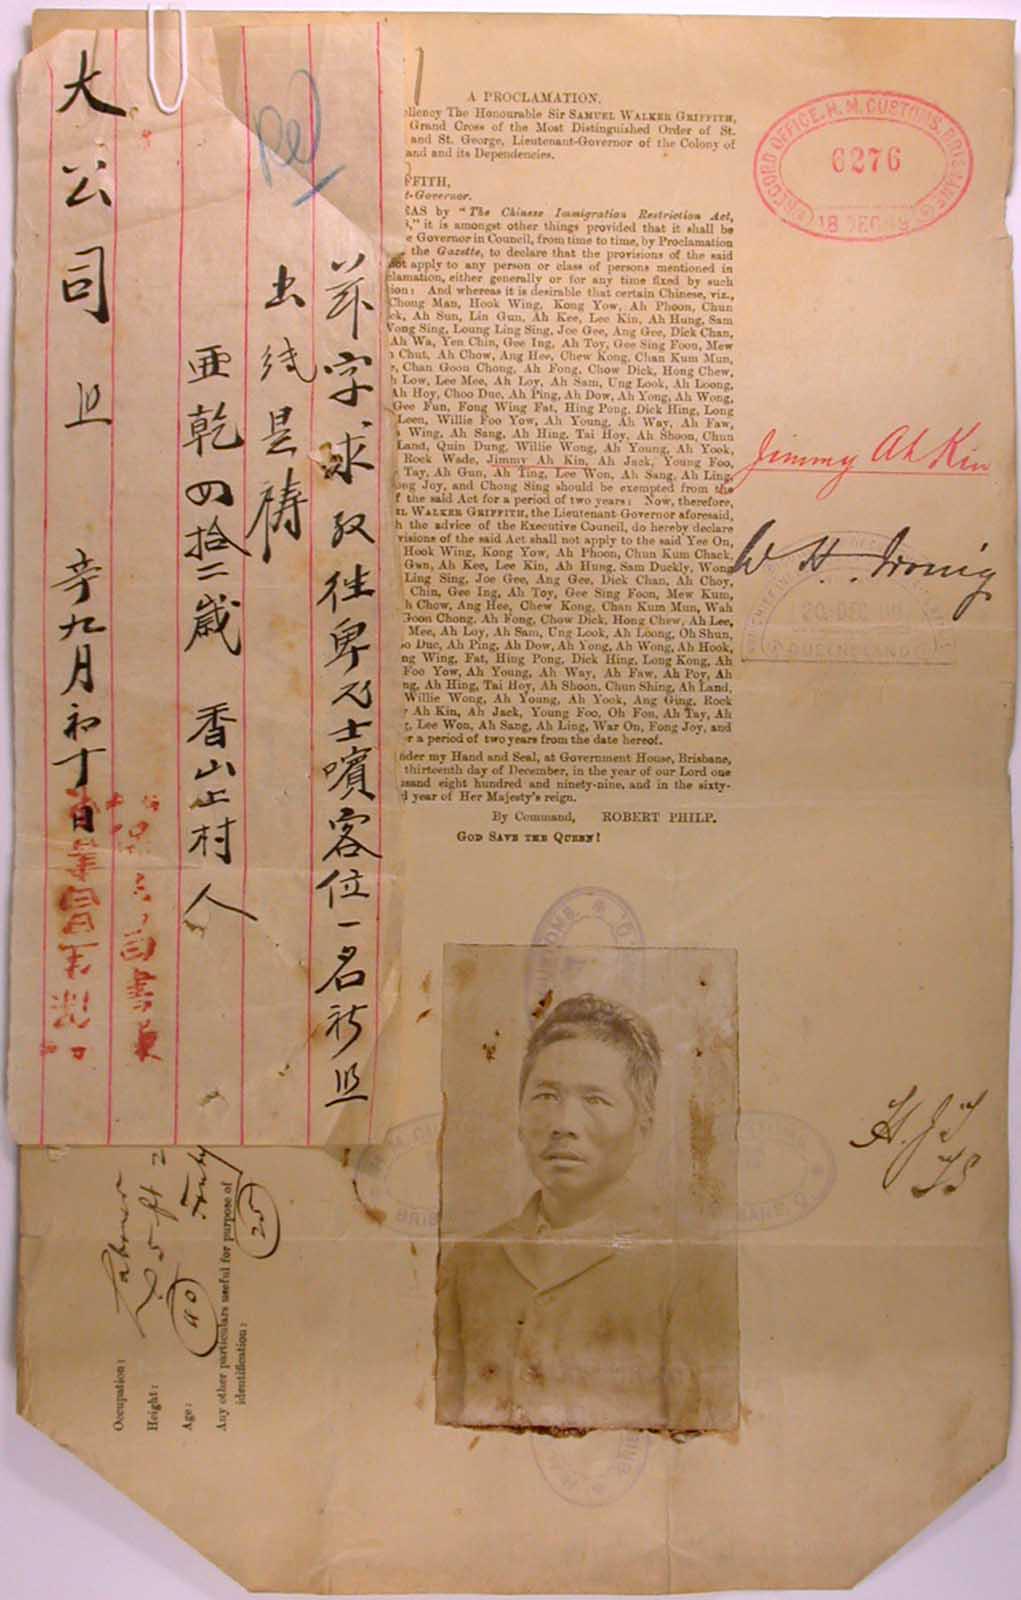 茲字求取往卑厘士嚬客位一名祈照
出紙是禱
亜乾四拾二歲 香山上村人
大公司照 辛九月初十日
A PROCLAMATION.
ellency The Honourable Sir SAMUEL WALKER GRIFFITH,
Grand Cross of the Most Distinguished Order of St.
and St. George, Lieutenant-Governor of the Colony of
and and its Dependencies.
FFITH,
t-Governor.
EAS by "The Chinese Immigration Restriction Act,
," it is amongst other things provided that it shall be
e Governor in Council, from time to time, by Proclamation
the Gazette, to declare that the provisions of the said
not apply to any person or class of persons mentioned in
clamation, either generally or for any time fixed by such
ion: And whereas it is desirable that certain Chinese, viz.,
Chong Man, Hook Wing, Kong Yow, Ah Phoon, Chun
ck, Ah Sun, Lin Gun, Ah Kee, Lee Kin, Ah Hung, Sam
Wong Sing, Loung Ling Sing, Joe Gee, Ang Gee, Dick Chan,
Ah Wa, Yen Chin, Gee Ing, Ah Toy, Gee Sing Foon, Mew
Chut, Ah Chow, Ang Hee, Chew Kong, Chan Kum Mun,
Chan Goon Chong, Ah Fong, Chow Dick, Hong Chew,
h Low, Lee Mee, Ah Loy, Ah Sam, Ung Look, Ah Loong,
Ah Hoy, Choo Duc, Ah Ping, Ah Dow, Ah Yong, Ah Wong,
Gee Fun, Fong Wing Fat, Hing Pong, Dick Hing, Long
Leen, Willie Foo Yow, Ah Young, Ah Way, Ah Faw,
Wing, Ah Sang, Ah Hing, Tai Hoy, Ah Shoon, Chun
Land, Quin Dung, Willie Wong, Ah Young, Ah Yook,
Rock Wade, Jimmy Ah Kin, Ah Jack, Young Foo,
Tay, Ah Gun, Ah Ting, Lee Won, Ah Sang, Ah Ling,
ong Joy, and Chong Sing should be exempted from the
f the said Act for a period of two years: Now, therefore,
EL WALKER GRIFFITH, the Lieutenant-Governor aforesaid,
h the advice of the Executive Council, do hereby declare
visions of the said Act shall not apply to the said Yee On,
Hook Wing, Kong Yow, Ah Phoon, Chun Kum Chack,
Gun, Ah Kee, Lee Kin, Ah Hung, Sam Duckly, Wong
Ling Sing, Joe Gee, Ang Gee, Dick Chan, Ah Choy,
Chin, Gee Ing, Ah Toy, Gee Sing Foon, Mew Kum,
h Chow, Ang Hee, Chew Kong, Chan Kum Mun, Wah
Goon Chong, Ah Fong, Chow Dick, Hong Chew, Ah Lee,
Mee, Ah Loy, Ah Sam, Ung Look, Ah Loong, Oh Shun,
oo Duc, Ah Ping, Ah Dow, Ah Yong, Ah Wong, Ah Hook,
ng Wing, Fat, Hing Pong, Dick Hing, Long Kong, Ah
Foo Yow, Ah Young, Ah Way, Ah Faw, Ah Poy, Ah
ng, Ah Hing, Tai Hoy, Ah Shoon, Chun Shing, Ah Land,
Willie Wong, Ah Young, Ah Yook, Ang Ging, Rock
Ah Kin, Ah Jack, Young Foo, Oh Fon, Ah Tay, Ah
g, Lee Won, Ah Sang, Ah Ling, War On, Fong Joy, and
r a period of two years from the date hereof.
nder my Hand and Seal, at Government House, Brisbane,
thirteenth day of December, in the year of our Lord one
usand eight hundred and ninety-nine, and in the sixty-
d year of Her Majesty's reign.
By Command, ROBERT PHILP.
GOD SAVE THE QUEEN!
RECORD OFFICE, H. M. CUSTOMS, BRISBANE
6276
18 DEC
Jimmy Ah Kin
W H
20 DEC
QUEENSLAND
Occupation: Labourer
Height: 5 ft 2
Age: 40
Any other particulars useful for purpose of
identification:
52